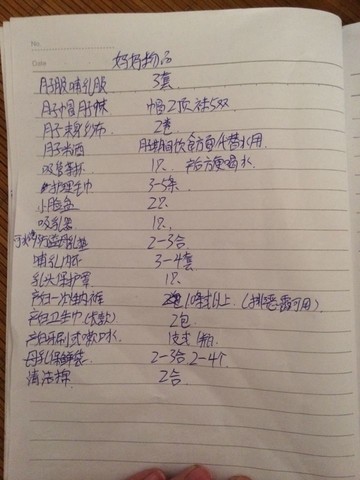 No.
Date
妈妈物品
月子服哺乳服 3套
月子帽月子袜 帽2顶 袜5双
月子束缚纱布 2卷
月子米酒 月子期间饮食方面代替水用
吸管杯 1只、产后方便喝水
护理毛巾 3-5条
小脸盆 2只
吸乳器 1只、
可水洗防溢母乳垫 2-3合
哺乳内衣 3-4套
乳头保护罩 1只、
产妇一次性内裤 2包 10条以上（排恶露可用）
产妇卫生巾(长款) 2包
产妇牙刷或漱口水 1支
母乳保鲜袋 2-3合 2-4个
清洁棉 2合